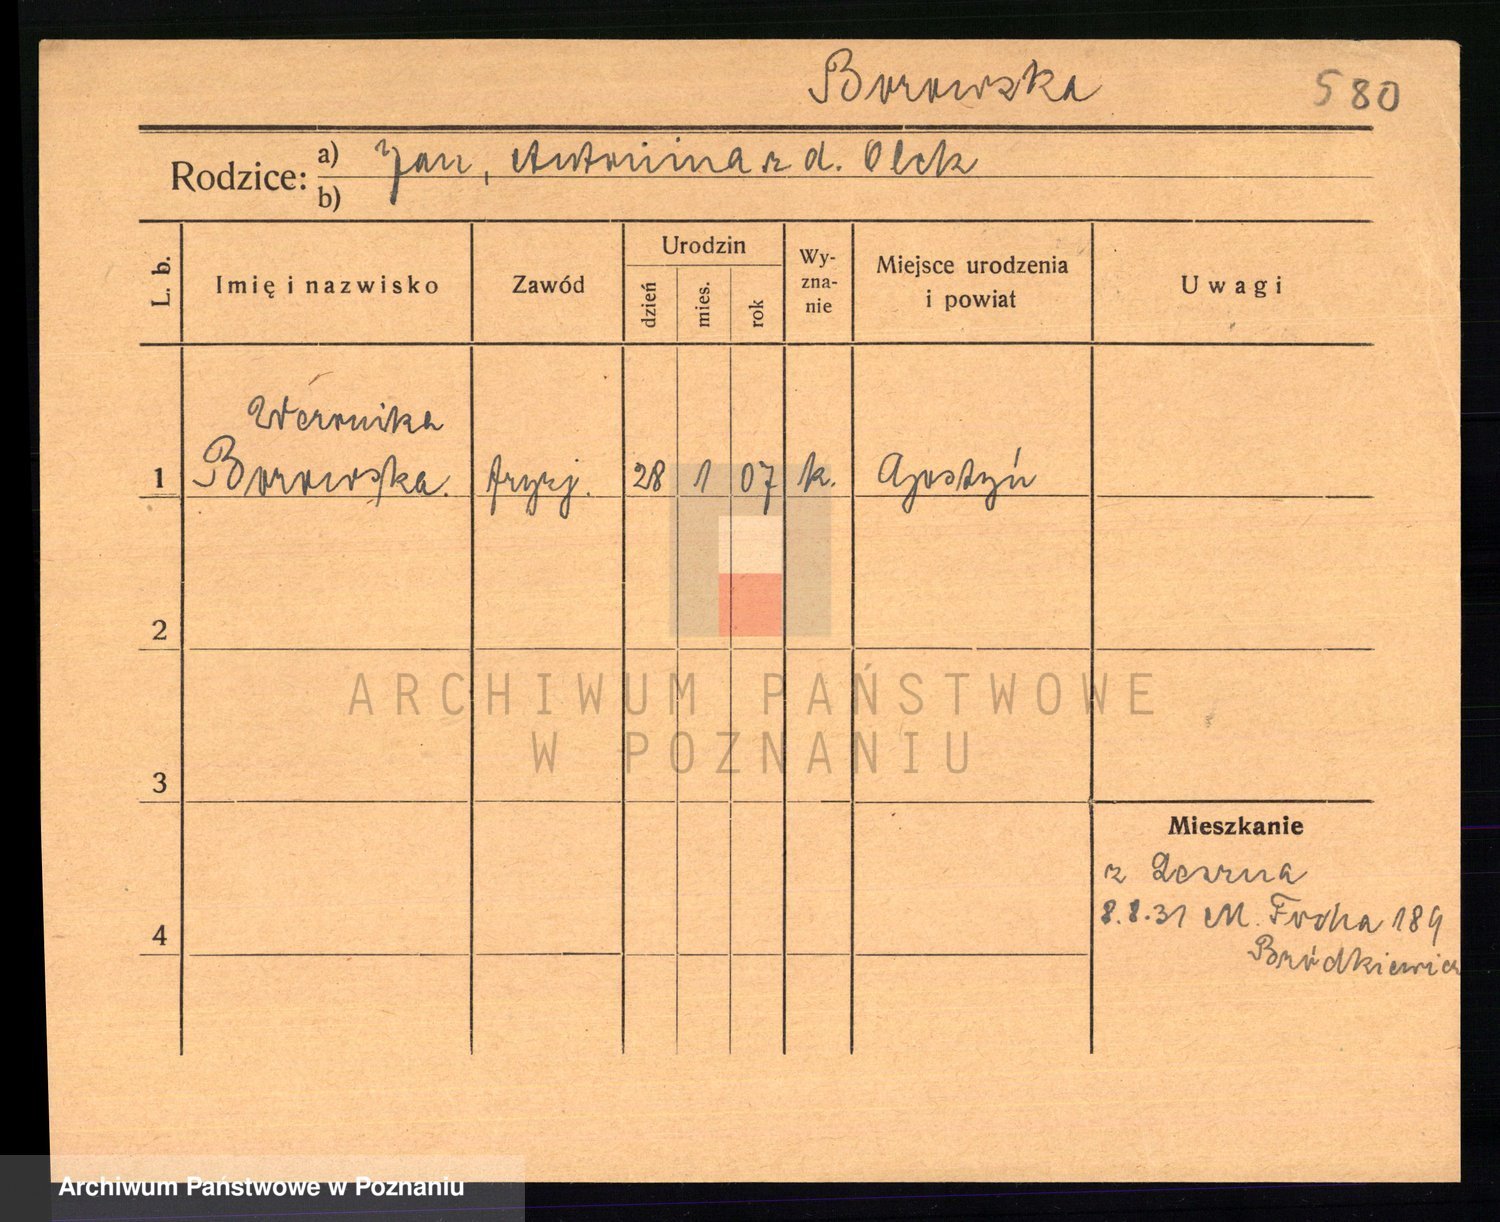 Borowska 580
Rodzice: a) Jan, Antonina z d. Olek
b)
L. b. Imię i nazwisko Zawód Urodzin dzień mies. rok Wy-zna-nie Miejsce urodzenia i powiat Uwagi
Weronika
1 Borowska. fryzj. 28 1 07 k. Gostyń
2
ARCHIWUM PAŃSTWOWE
W POZNANIU
3
Mieszkanie
z Leszna
8.8.31 M. Focha 189
4 Bródkiewicz
Archiwum Państwowe w Poznaniu